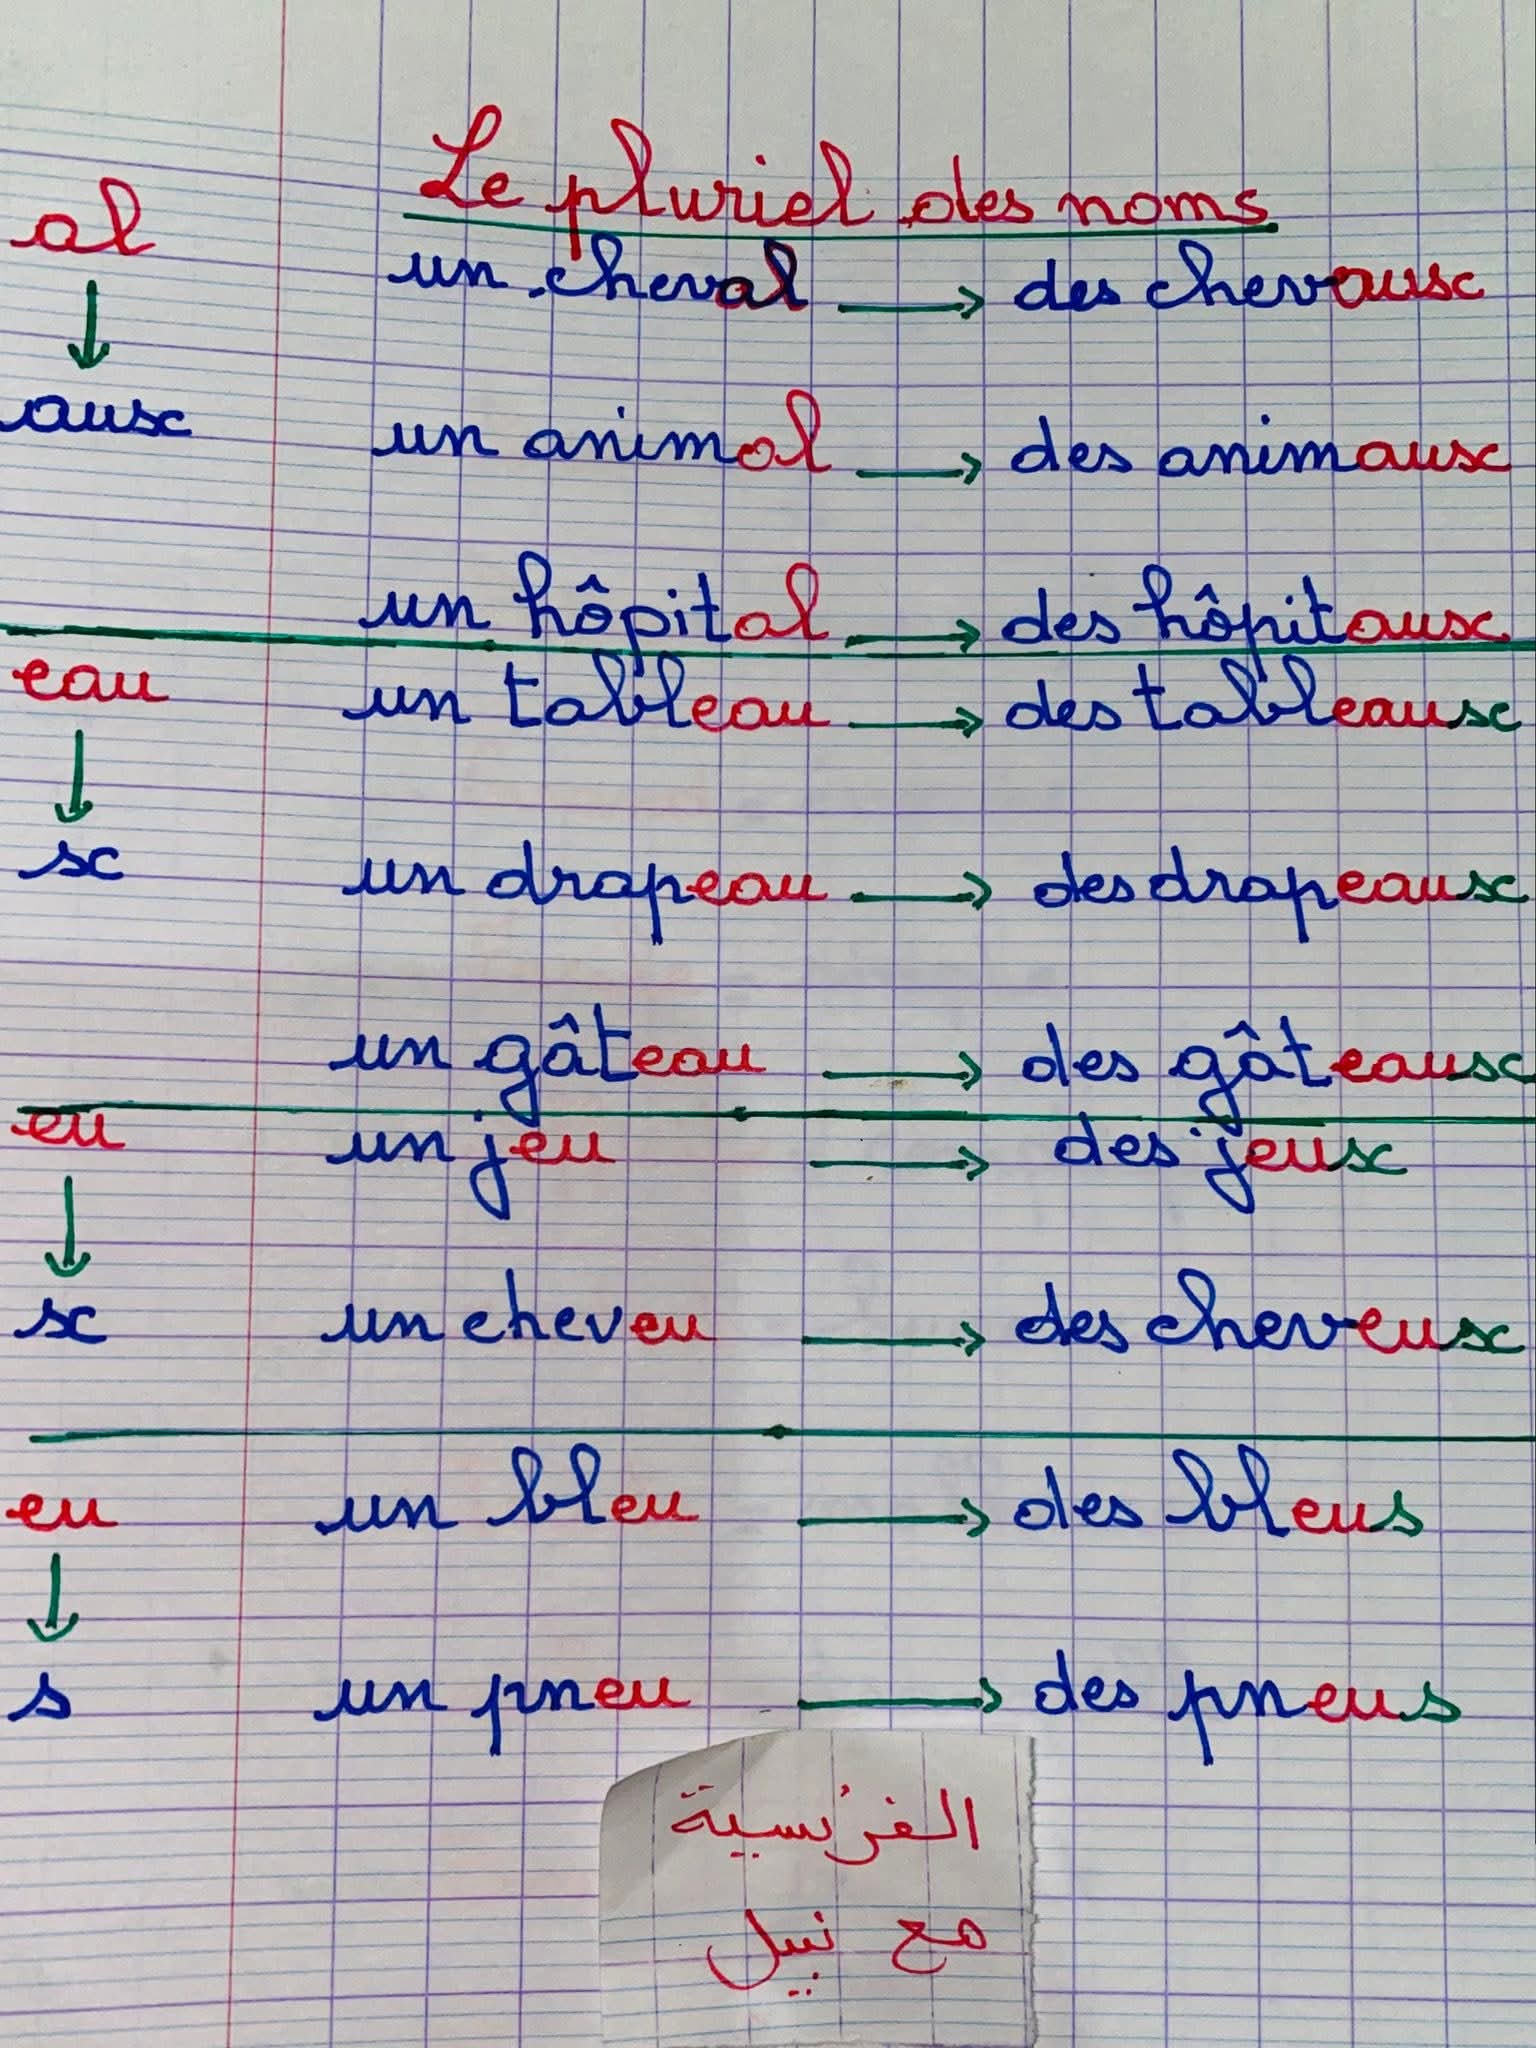 Le pluriel des noms
al
↓
aux
un cheval → des chevaux
un animal → des animaux
un hôpital → des hôpitaux
eau
↓
x
un tableau → des tableaux
un drapeau → des drapeaux
un gâteau → des gâteaux
eu
↓
x
un jeu → des jeux
un cheveu → des cheveux
eu
↓
s
un bleu → des bleus
un pneu → des pneus
الفرنسية
مع نبيل